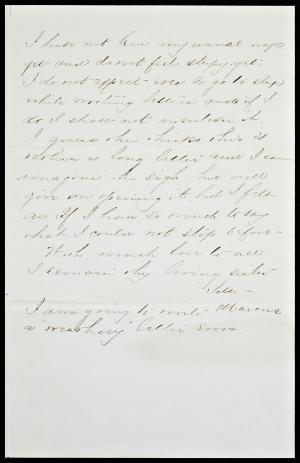 I have not had my usual nap
yet and do not feel sleepy yet.
I do not expect ever to go to sleep
while writing letters and if I
do I shall not mention it.
I guess thee thinks this is
rather a long letter and I can
imagine the sigh he will
give on opening it, but I felt
as if I had so much to say
that I could not stop before -
With much love to all
I remain thy loving sister
I am going to write Marcus
a "preachery" letter soon.